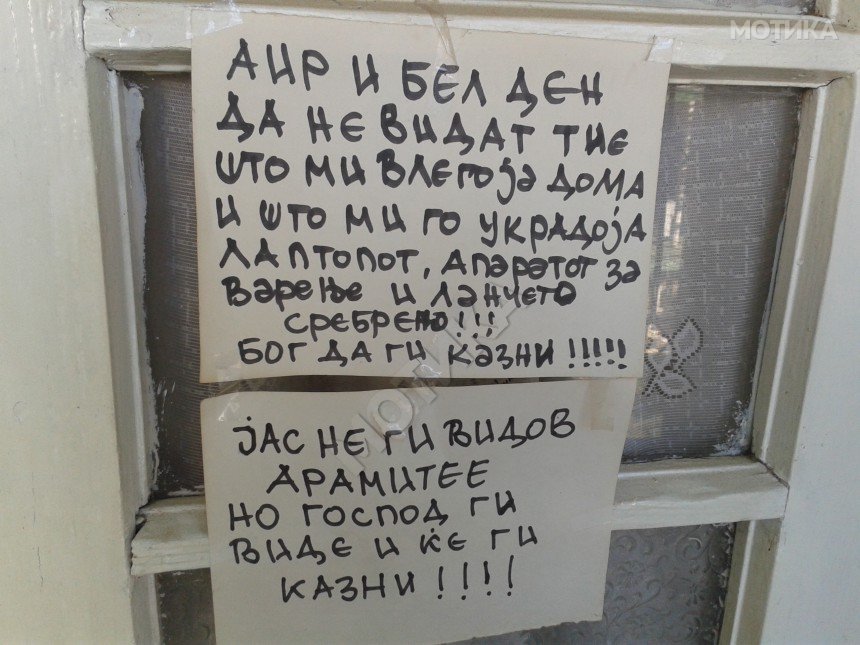 МОТИКА
АИР И БЕЛ ДЕН
ДА НЕ ВИДАТ ТИЕ
ШТО МИ ВЛЕГОЈА ДОМА
И ШТО МИ ГО УКРАДОЈА
ЛАПТОПОТ, АПАРАТОТ ЗА
ВАРЕЊЕ И ЛАНЧЕТО
СРЕБРЕНО!!!
БОГ ДА ГИ КАЗНИ !!!!!
МОТИКА
ЈАС НЕ ГИ ВИДОВ
АРАМИТЕЕ
НО ГОСПОД ГИ
ВИДЕ И ЌЕ ГИ
КАЗНИ !!!!